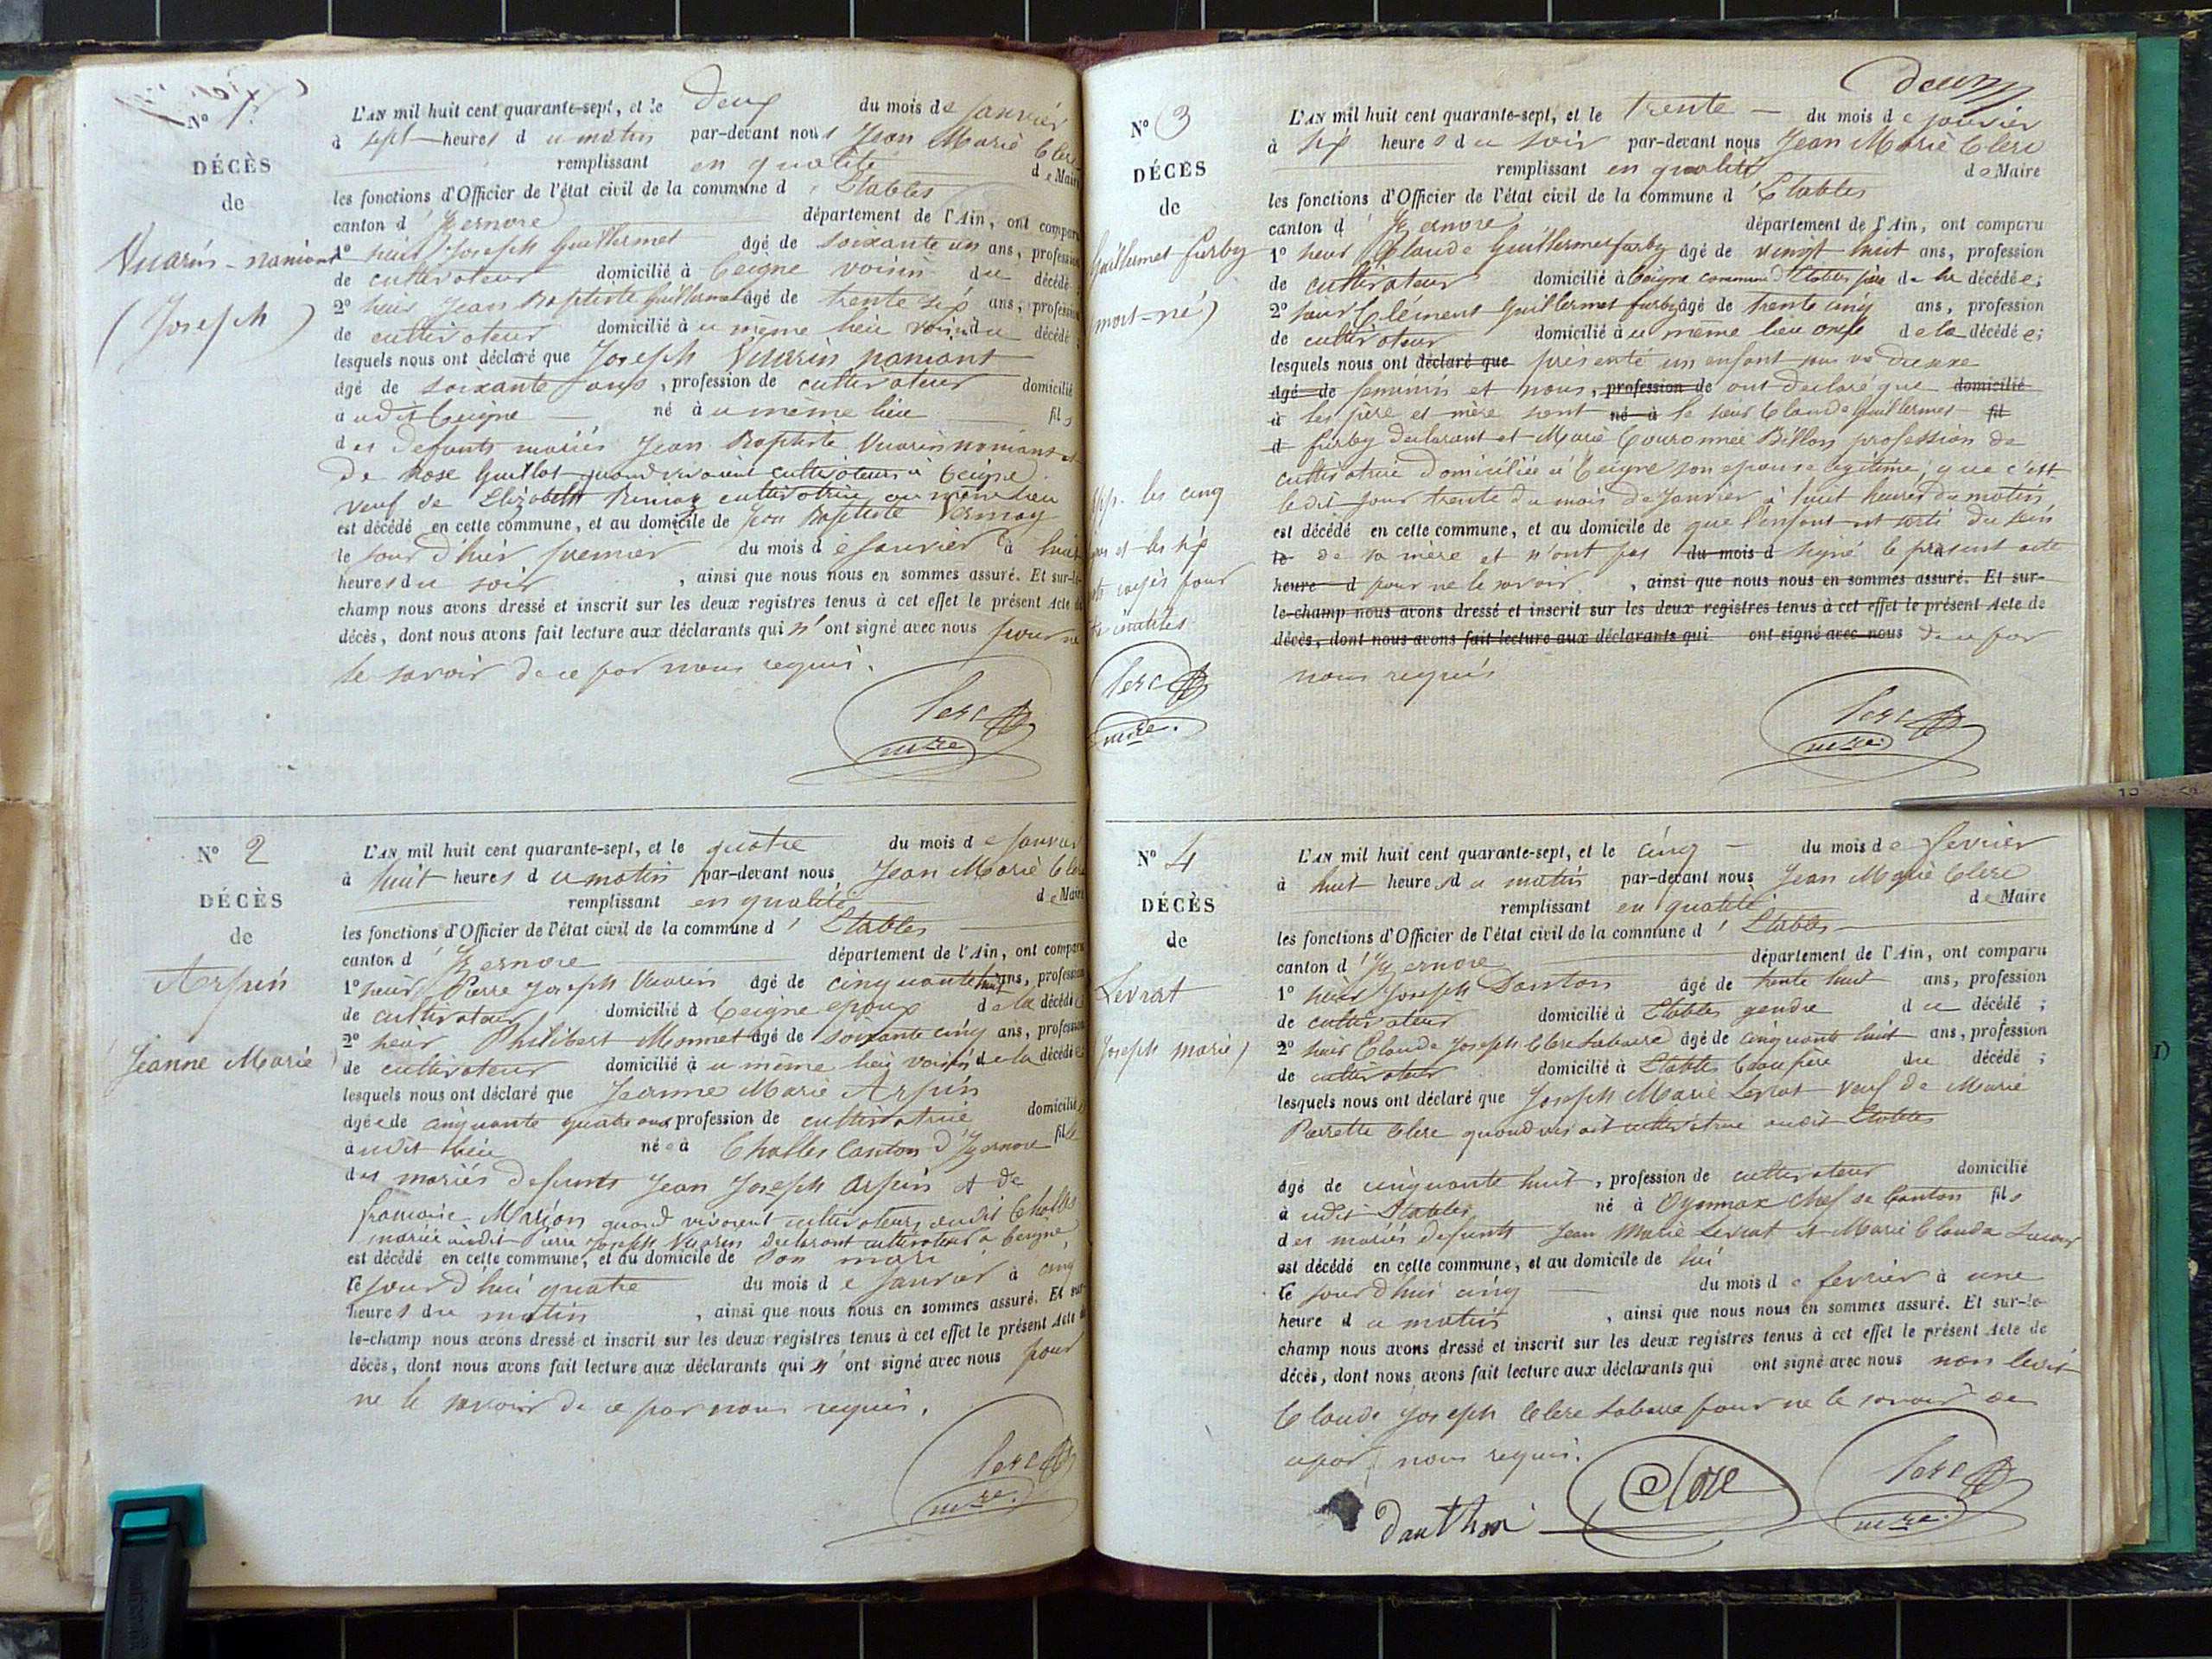 N° 1
DÉCÈS
de
Vuarin-naniant
(Joseph)
L'AN mil huit cent quarante-sept, et le deux du mois de janvier
à sept heures du matin par-devant nous Jean Marie Clerc
remplissant en qualité de Maire
les fonctions d'Officier de l'état civil de la commune d'Etables
canton d'Izernore département de l'Ain, ont comparu
1° sieur Joseph Guillermet âgé de soixante un ans, profession
de cultivateur domicilié à Ceigne voisin du décédé
2° sieur Jean Baptiste Guillermet âgé de trente six ans, profession
de cultivateur domicilié à u même lieu voisin du décédé
lesquels nous ont déclaré que Joseph Vuarin naniant
âgé de soixante ans, profession de cultivateur domicilié
audit Ceigne né à u même lieu fils
des defunts mariés Jean Baptiste Vuarin naniant et
de Rose Guillot quand vivaient cultivateurs à Ceigne
veuf de Elizabeth cultivatrice au même lieu
est décédé en cette commune, et au domicile de Jean Baptiste Vernay
le jour d'hier premier du mois de janvier à huit
heures du soir, ainsi que nous nous en sommes assuré. Et sur-le-
champ nous avons dressé et inscrit sur les deux registres tenus à cet effet le présent Acte de
décès, dont nous avons fait lecture aux déclarants qui n'ont signé avec nous pour ne
le savoir de ce par nous requis.
Clerc
mre
N° 2
DÉCÈS
de
Arpin
Jeanne Marie
L'AN mil huit cent quarante-sept, et le quatre du mois de janvier
à huit heures du matin par-devant nous Jean Marie Clerc
remplissant en qualité de Maire
les fonctions d'Officier de l'état civil de la commune d'Etables
canton d'Izernore département de l'Ain, ont comparu
1° sieur Pierre Joseph Vuarin âgé de cinquante huit ans, profession
de cultivateur domicilié à Ceigne epoux de la décédée
2° sieur Philibert Monnet âgé de soixante cinq ans, profession
de cultivateur domicilié à u même lieu voisin de la décédée
lesquels nous ont déclaré que Jeanne Marie Arpin
âgée de cinquante quatre ans profession de cultivatrice domiciliée
audit lieu née à Challes Canton d'Izernore fille
des mariés defunts Jean Joseph Arpin et de
francoise Marion quand vivaient cultivateurs audit Challes
mariée audit Pierre Joseph Vuarin declarant cultivateur à Ceigne
est décédé en cette commune, et au domicile de son mari
le jour d'hui quatre du mois de janvier à cinq
heures du matin, ainsi que nous nous en sommes assuré. Et sur
le-champ nous avons dressé et inscrit sur les deux registres tenus à cet effet le présent Acte de
décès, dont nous avons fait lecture aux déclarants qui n'ont signé avec nous pour
ne le savoir de ce par nous requis.
Clerc
mre.
deux
N° 3
DÉCÈS
de
Guillermet furby
(mort-né)
les cinq
et les six
rayés pour
Clerc
mre.
L'AN mil huit cent quarante-sept, et le trente du mois de janvier
à six heures du soir par-devant nous Jean Marie Clerc
remplissant en qualité de Maire
les fonctions d'Officier de l'état civil de la commune d'Etables
canton d'Izernore département de l'Ain, ont comparu
1° sieur Claude Guillermet furby âgé de vingt huit ans, profession
de cultivateur domicilié à Ceigne commune d'Etables père de la décédée;
2° sieur Clément Guillermet furby âgé de trente cinq ans, profession
de cultivateur domicilié à u même lieu oncle de la décédée;
lesquels nous ont déclaré que présenté un enfant sans vie du sexe
âgé de feminin et nous, profession de ont declaré que domicilié
à les père et mère sont né à le sieur Claude Guillermet fil
d furby declarant et Marie Couronnée Billon profession de
cultivatrice domiciliée à Ceigne son epouse legitime; que c'est
ledit jour trente du mois de janvier à huit heures du matin
est décédé en cette commune, et au domicile de que l'enfant est sorti du sein
le de sa mère et n'ont pas du mois d signé le présent acte
heure d pour ne le savoir, ainsi que nous nous en sommes assuré. Et sur-
le-champ nous avons dressé et inscrit sur les deux registres tenus à cet effet le présent Acte de
décès, dont nous avons fait lecture aux déclarants qui ont signé avec nous de ce par
nous requis
Clerc
mre.
N° 4
DÉCÈS
de
Levrat
Joseph marie)
L'AN mil huit cent quarante-sept, et le cinq du mois de fevrier
à huit heures du matin par-devant nous Jean Marie Clerc
remplissant en qualité de Maire
les fonctions d'Officier de l'état civil de la commune d'Etables
canton d'Izernore département de l'Ain, ont comparu
1° sieur Joseph Danton âgé de trente huit ans, profession
de cultivateur domicilié à Etables gendre du décédé;
2° sieur Claude Joseph Clerc Labarre âgé de cinquante huit ans, profession
de cultivateur domicilié à Etables beau frère du décédé;
lesquels nous ont déclaré que Joseph Marie Levrat veuf de Marie
Pierrette Clerc quand vivait cultivatrice audit Etables
âgé de cinquante huit, profession de cultivateur domicilié
audit Etables né à Oyonnax chef de Canton fils
des mariés defunts Jean Marie Levrat et Marie Claude
est décédé en cette commune, et au domicile de lui
le jour d'hui cinq du mois de fevrier à une
heure du matin, ainsi que nous nous en sommes assuré. Et sur-le-
champ nous avons dressé et inscrit sur les deux registres tenus à cet effet le présent Acte de
décès, dont nous avons fait lecture aux déclarants qui ont signé avec nous non ledit
Claude Joseph Clerc Labarre pour ne le savoir de
ce par nous requis.
Danthon
Clerc
mre.